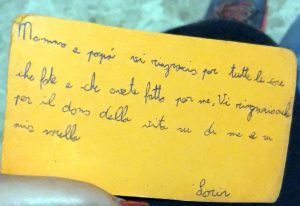 Mamma e papà vi ringrazio per tutte le cose
che fate e che avete fatto per me, Vi ringrazio anche
per il dono della vita su di me e su
mia sorella